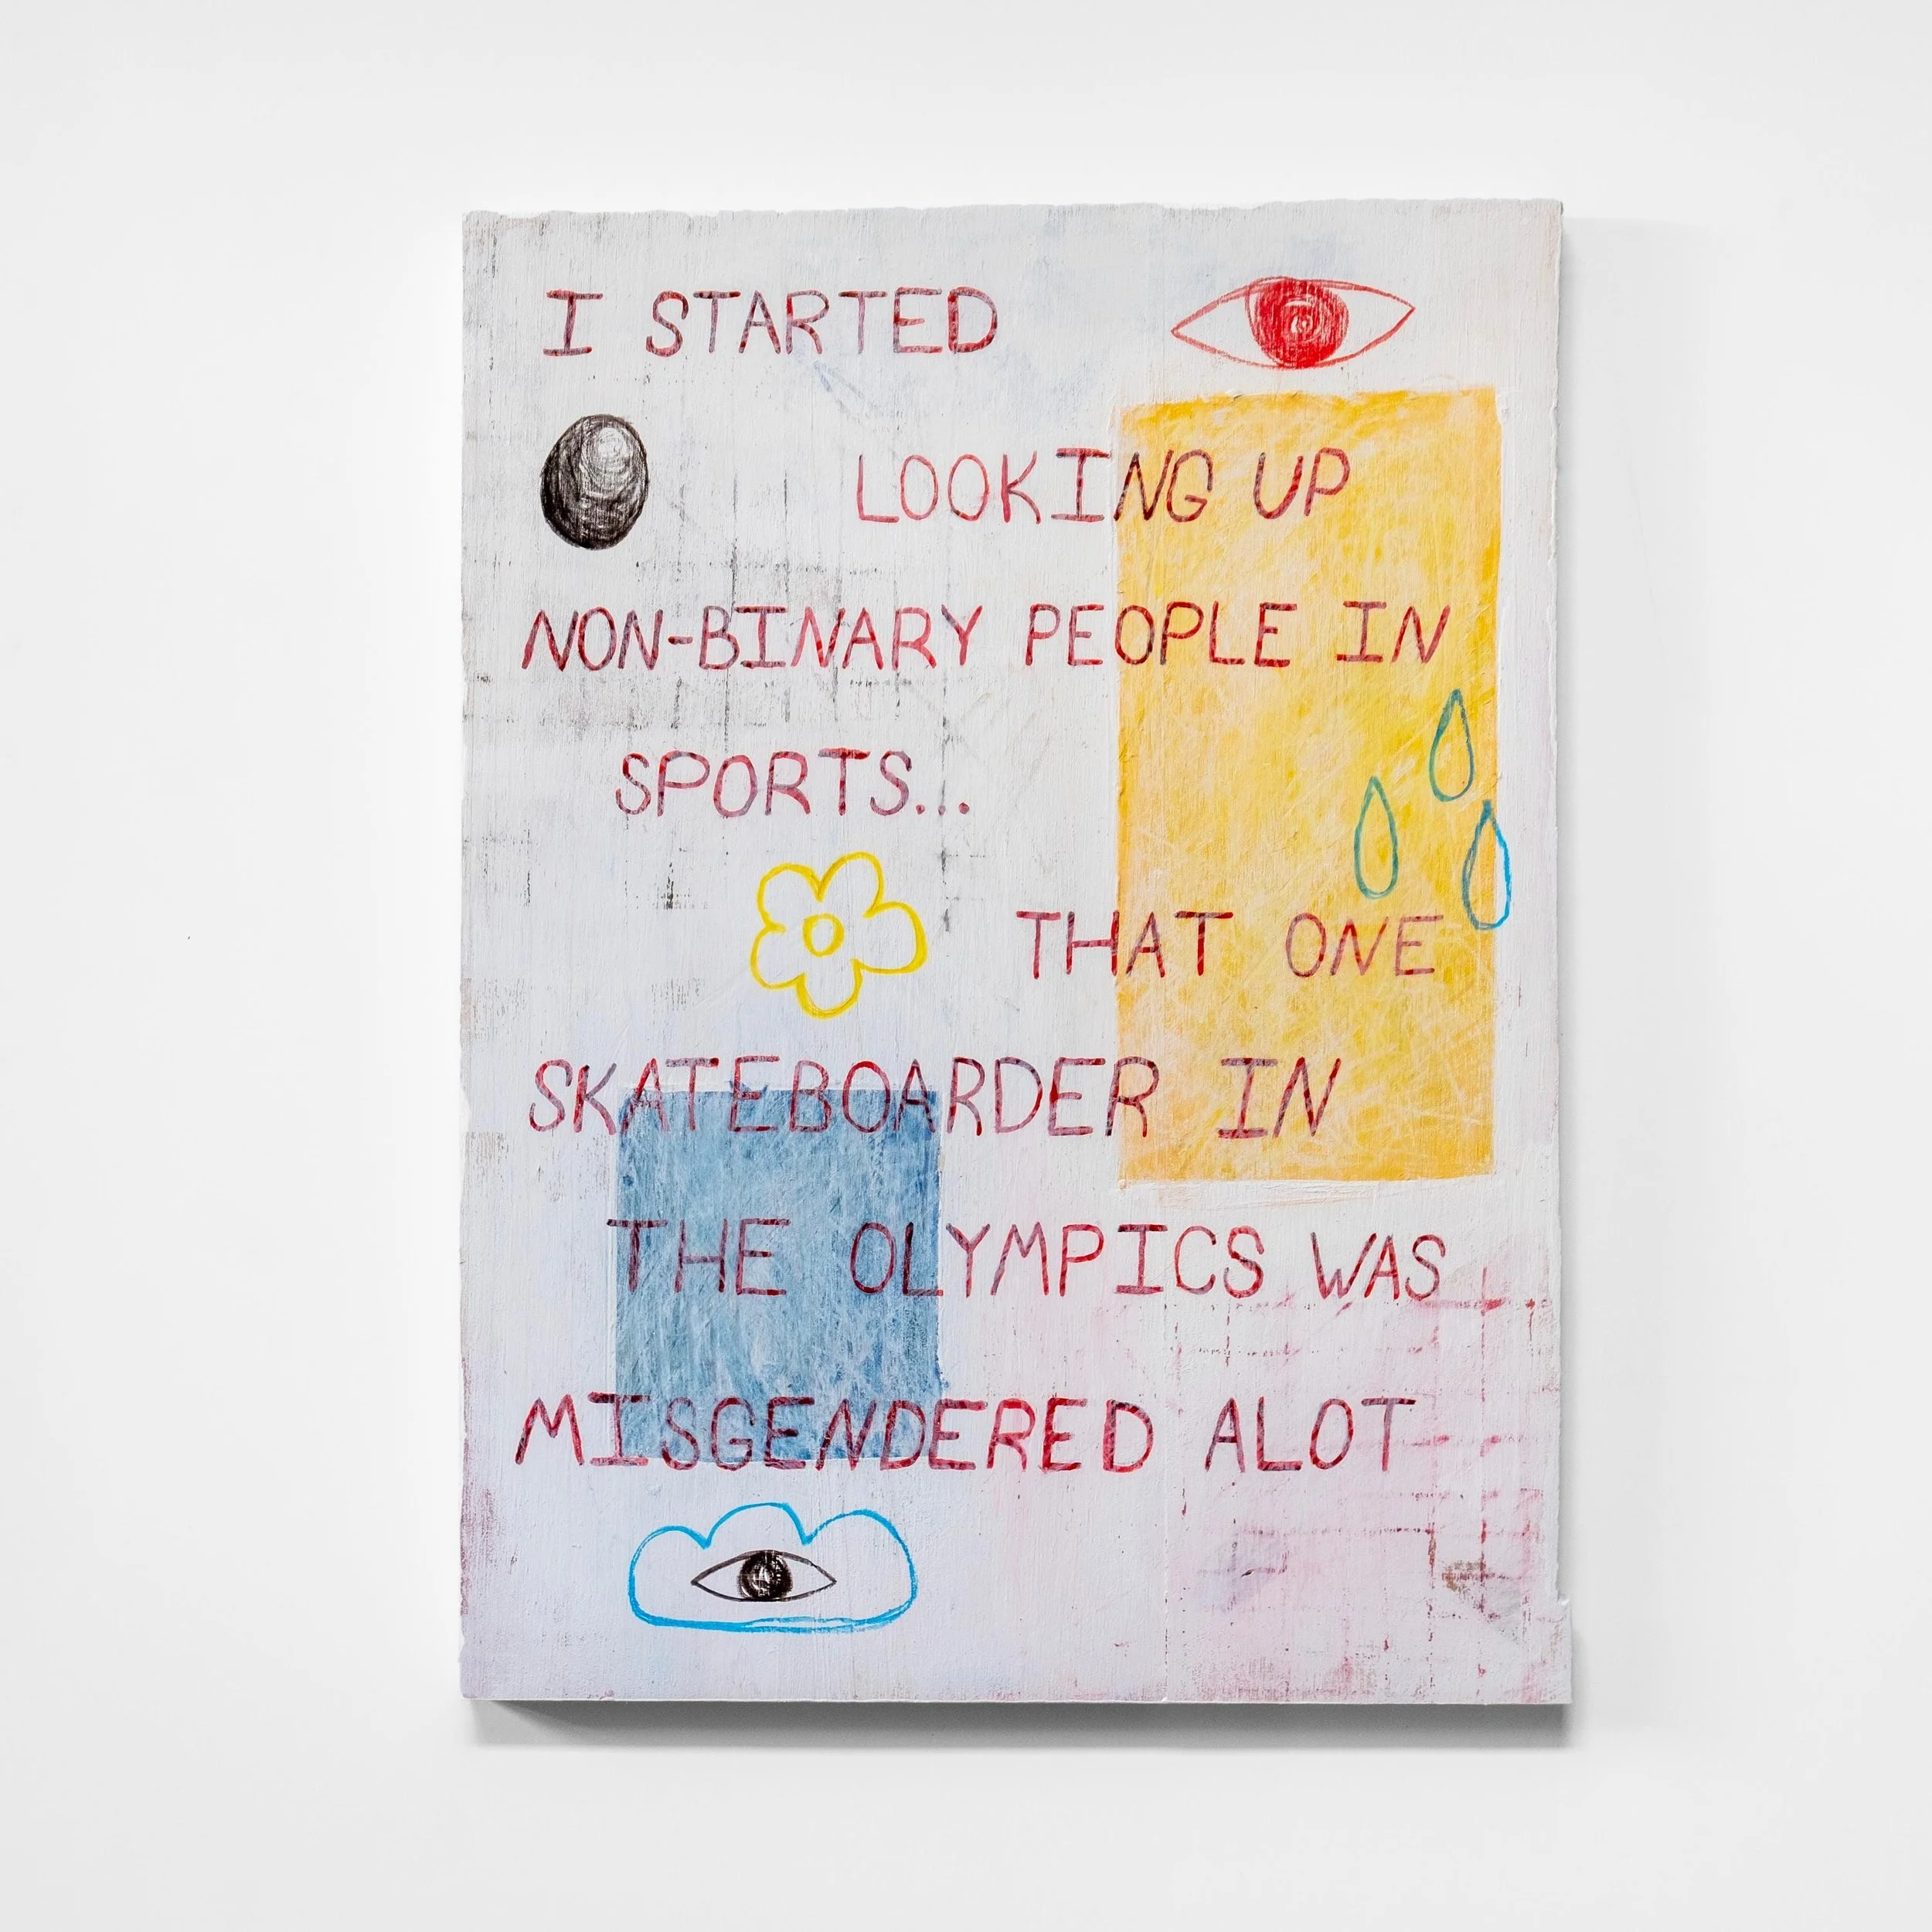 I STARTED
LOOKING UP
NON-BINARY PEOPLE IN
SPORTS...
THAT ONE
SKATEBOARDER IN
THE OLYMPICS WAS
MISGENDERED ALOT